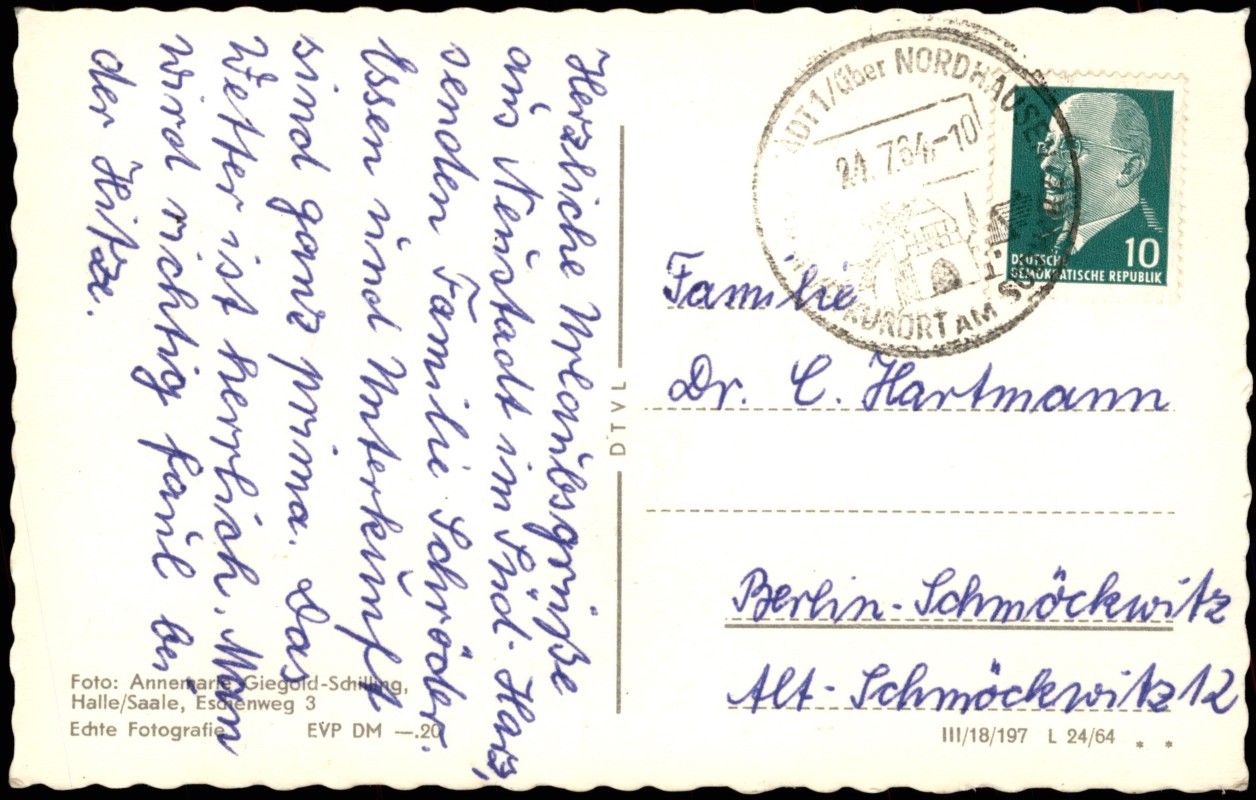 Herzliche Urlaubsgrüße
aus Neustadt im Süd-Harz,
senden Familie Schröder.
Essen und Unterkunft
sind ganz prima. Das
Wetter ist herrlich. Man
wird richtig faul bei
der Hitze.
Foto: Annemarie Giegold-Schilling,
Halle/Saale, Eschenweg 3
Echte Fotografie EVP DM —.20
DTVL
ADT1/über NORDHAUSEN
7.64.-10
KURORT AM
10
DEUTSCHE
DEMOKRATISCHE REPUBLIK
Familie
Dr. C. Hartmann
Berlin-Schmöckwitz
Alt-Schmöckwitz 12
III/18/197 L 24/64 * *